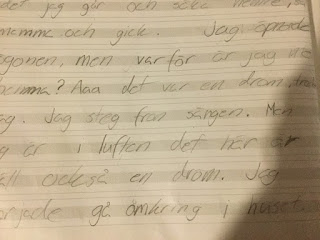 det jag går och söka hemme,
hemma och gick. Jag öpnade
ögonen, men varför är jag
hemma? Aaa det var en dröm,
ag. Jag steg från sängen. Men
g är i luften det här är
äll också en dröm. Jag
örjade gå omkring i huset.